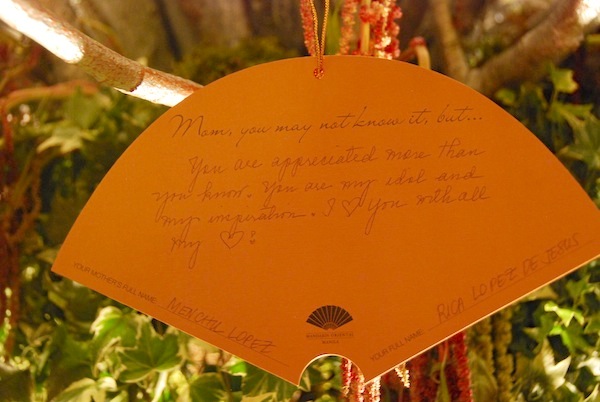 Mom, you may not know it, but...
You are appreciated more than
you know. You are my idol and
my inspiration. I ♡ you with all
my ♡!
YOUR MOTHER'S FULL NAME: MENCHU LOPEZ
MANDARIN ORIENTAL
MANILA
YOUR FULL NAME: RICA LOPEZ DE JESUS